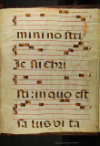 mini no stri
Je su chri
sti: in quo est
sa lus vi ta